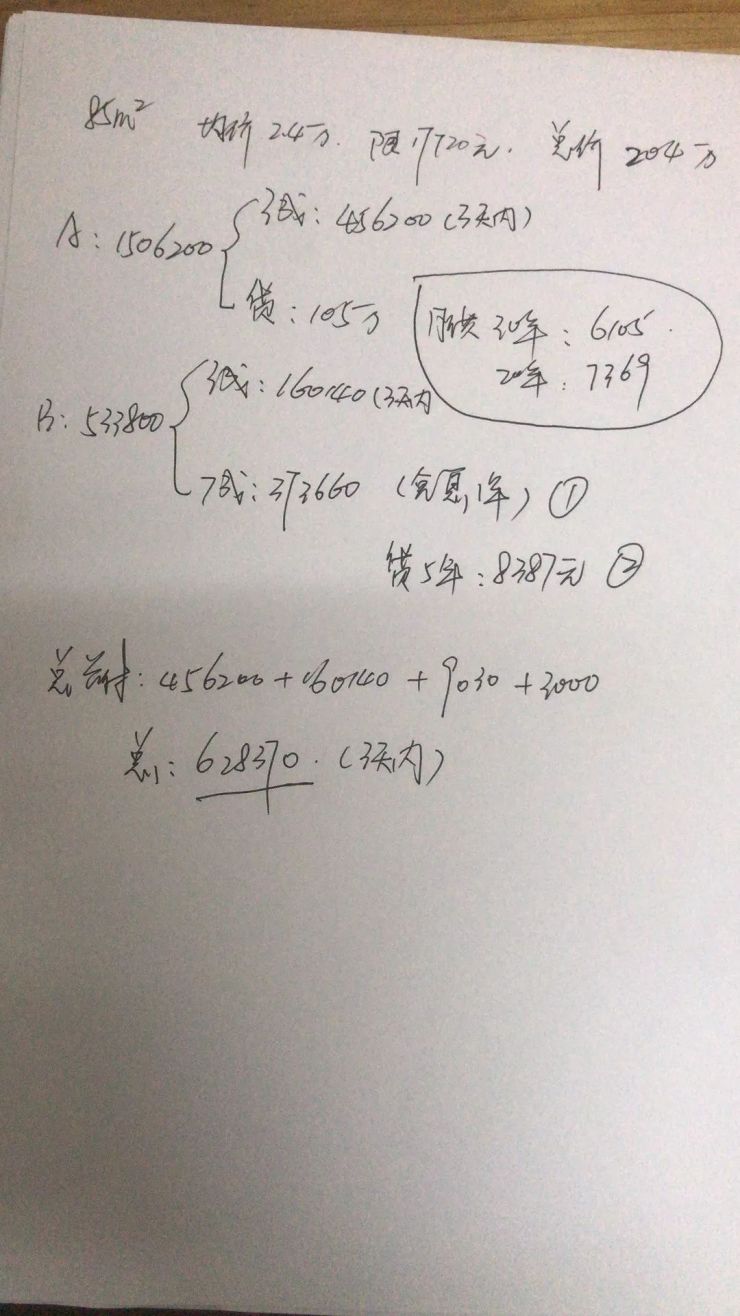 85m² 均价2.4万. 限17720元. 总价204万
A: 1506200
3成: 456200 (3天内)
贷: 105万
月供 30年: 6105.
20年: 7369
B: 533800
3成: 160140 (3天内
7成: 373660 (免息1年) ①
贷5年: 8387元 ②
总首付: 456200+160140+9030+3000
总: 628370. (3天内)